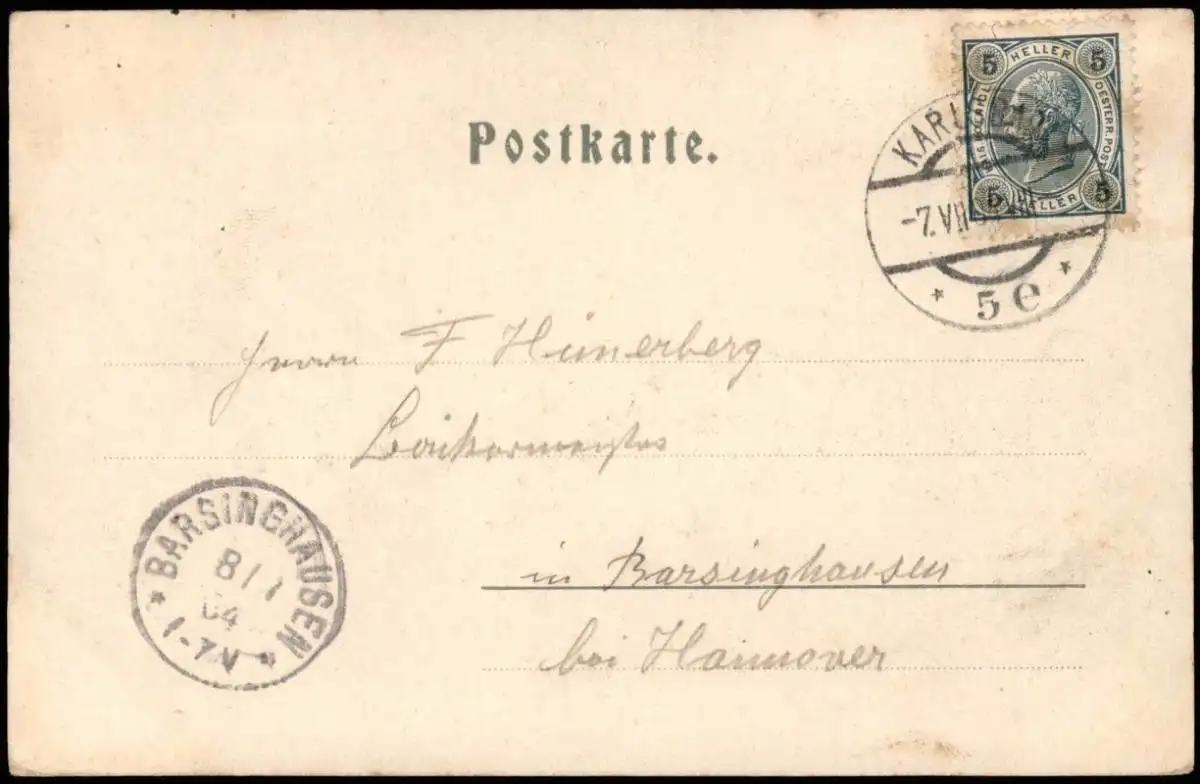 5 HELLER 5
OESTERR. POST
5 HELLER 5
Postkarte.
KARL
-7.VII
* 5e *
Herrn F Hünerberg
Bäckermeister
in Barsinghausen
bei Hannover
* BARSINGHAUSEN *
8/
04
1-7N